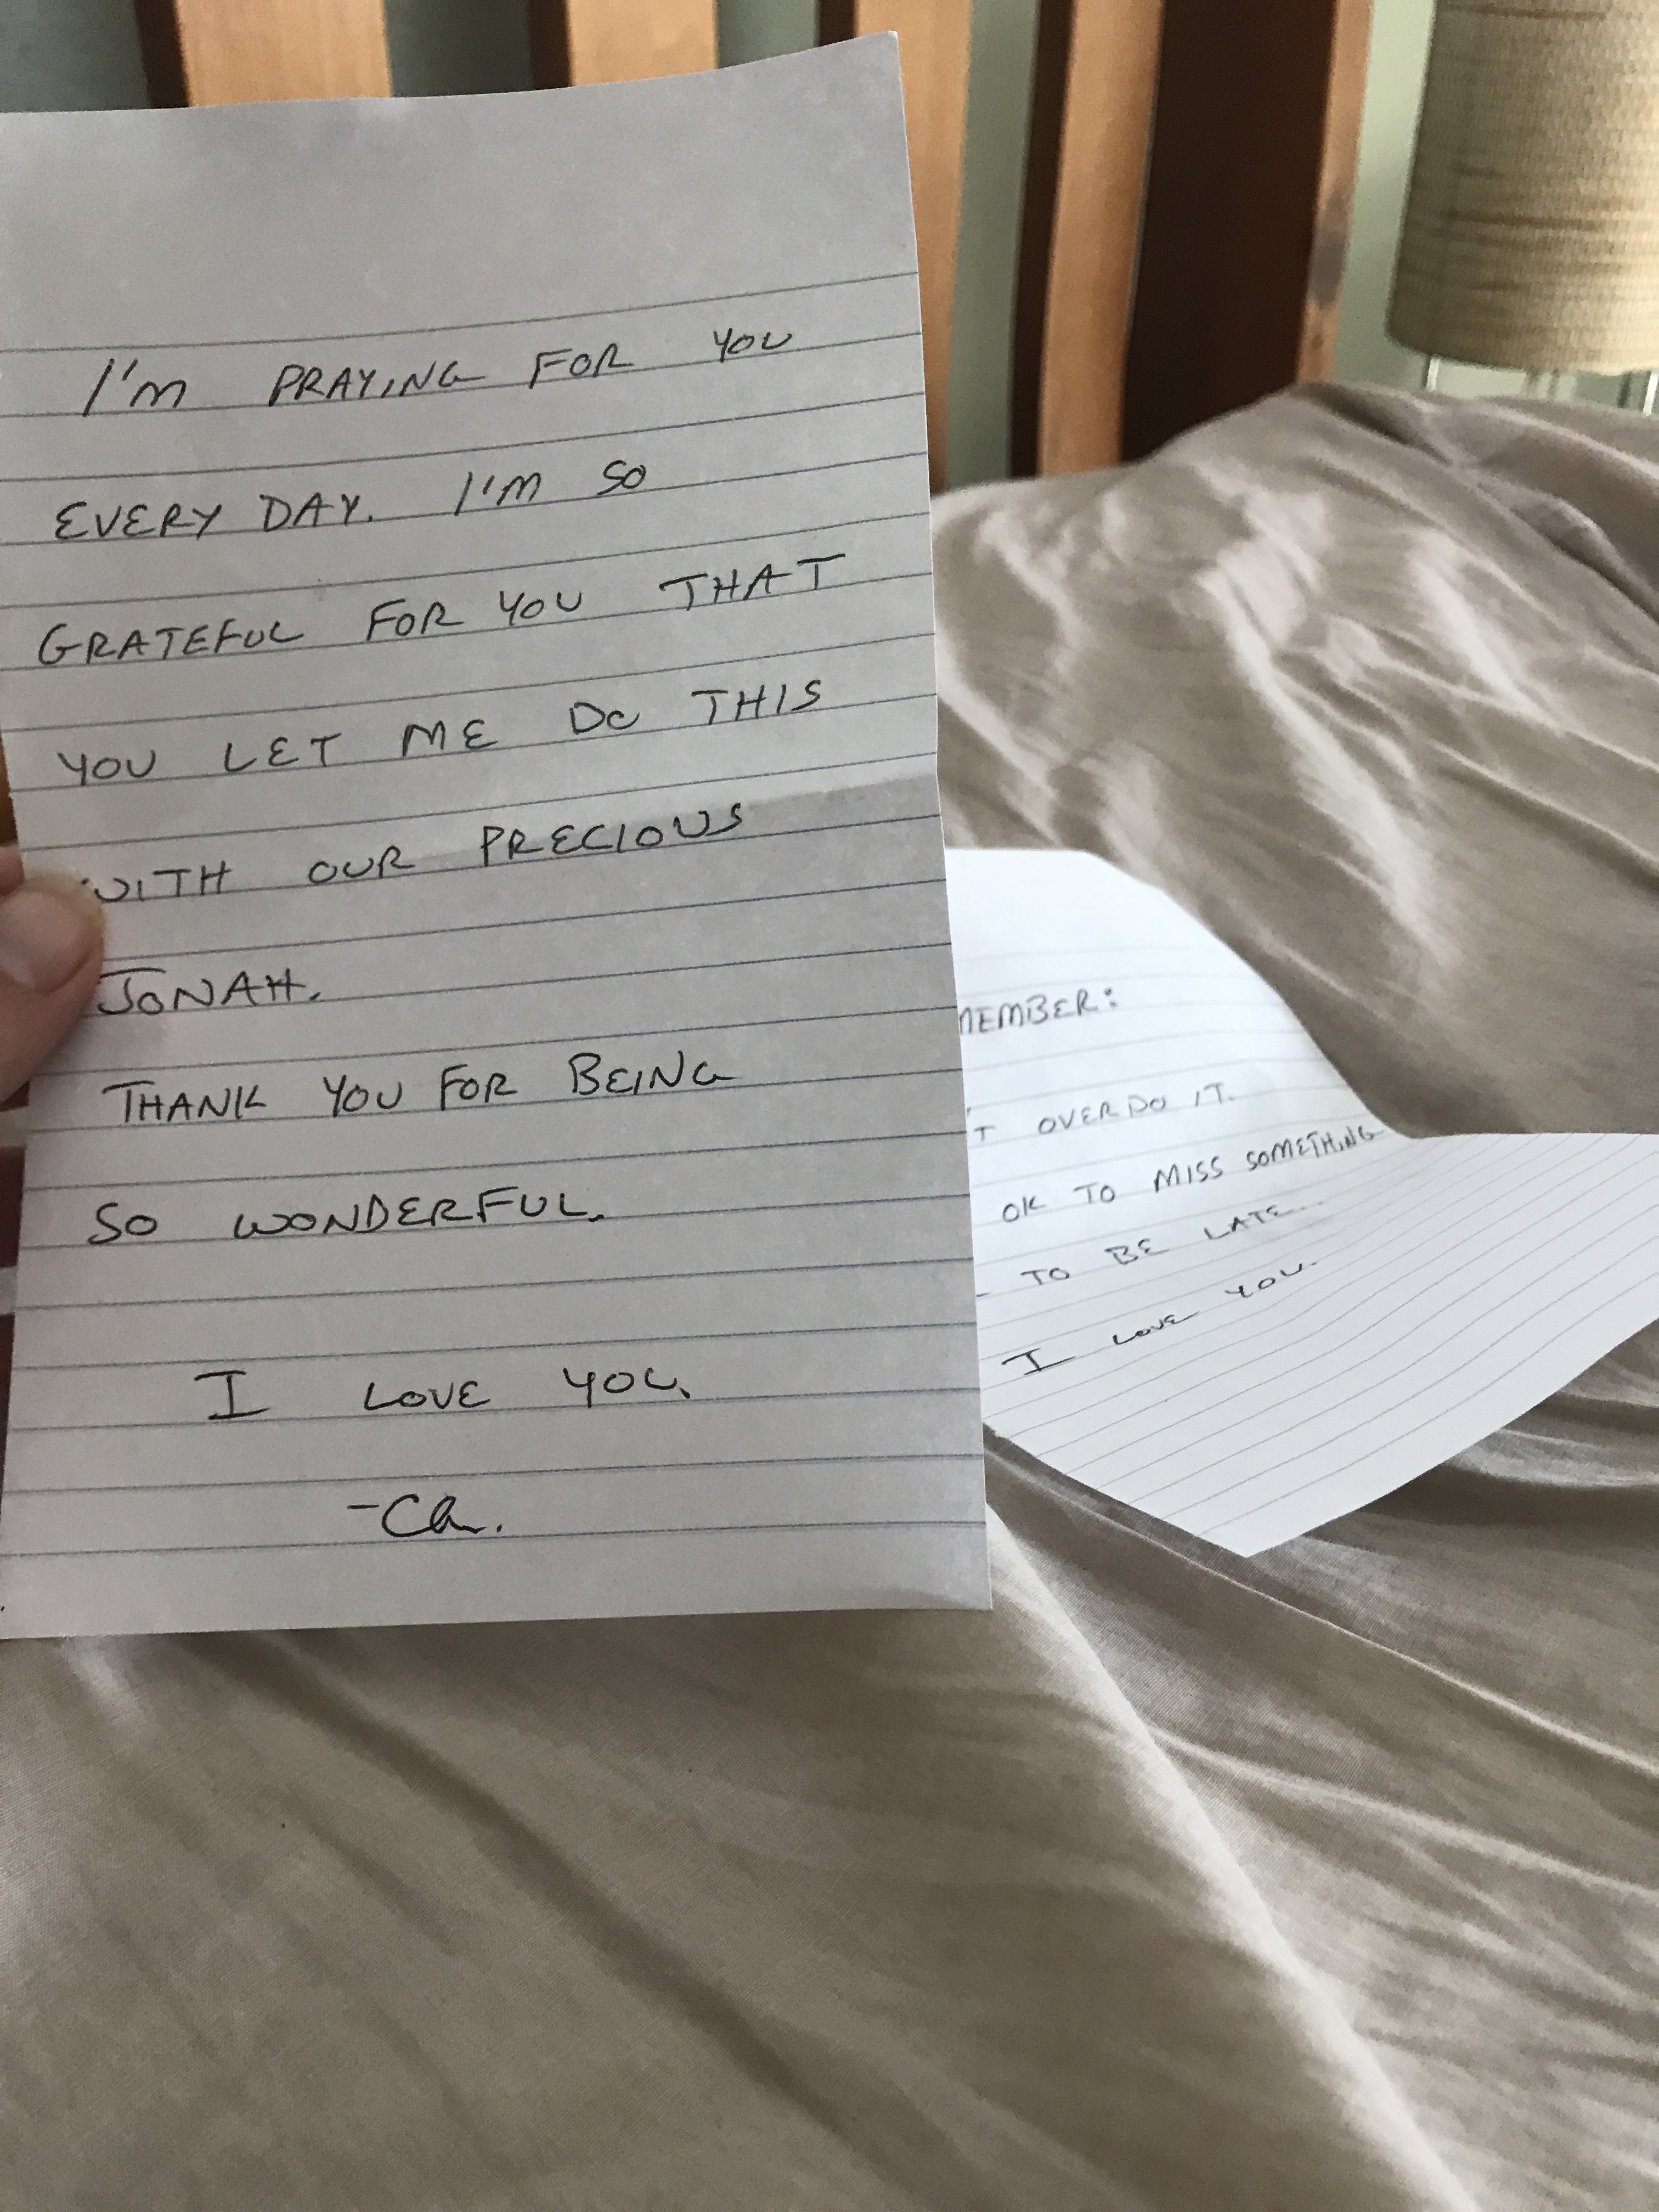 I'M PRAYING FOR YOU
EVERY DAY. I'M SO
GRATEFUL FOR YOU THAT
YOU LET ME DO THIS
WITH OUR PRECIOUS
JONAH.
THANK YOU FOR BEING
SO WONDERFUL.
I LOVE YOU.
MEMBER:
T OVERDO IT.
OK TO MISS SOMETHING
TO BE LATE...
I LOVE YOU.